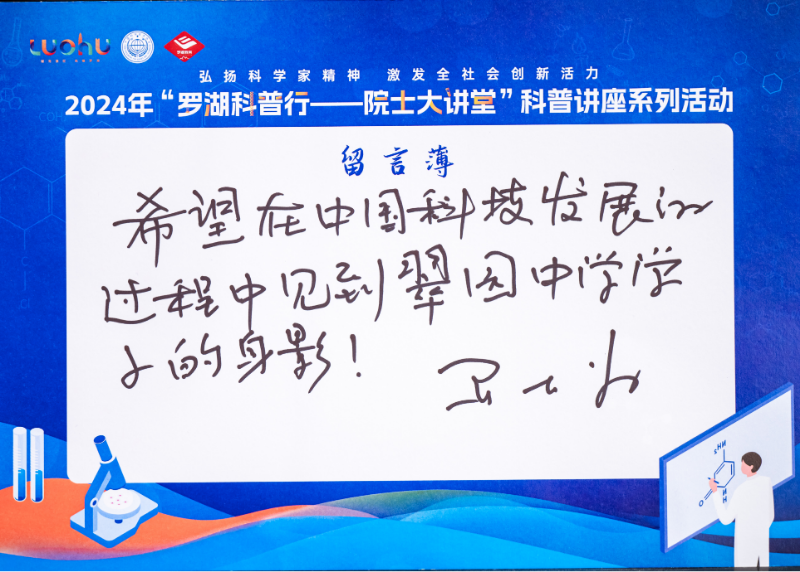 LUOHU
弘扬科学家精神 激发全社会创新活力
2024年“罗湖科普行——院士大讲堂”科普讲座系列活动
留言薄
希望在中国科技发展的
过程中见到翠园中学学
子的身影！